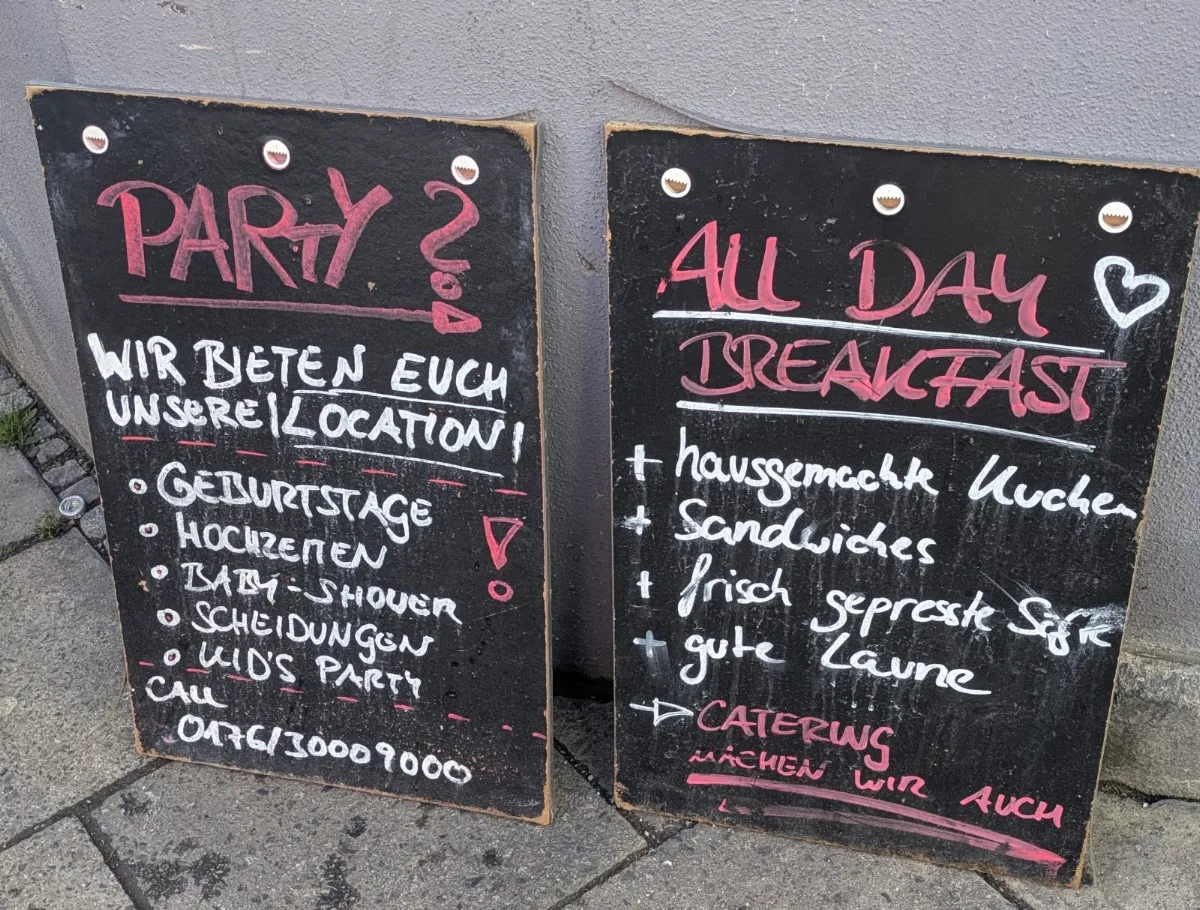 PARTY?
WIR BIETEN EUCH
UNSERE LOCATION!
GEBURTSTAGE
HOCHZEITEN
BABY-SHOWER
SCHEIDUNGEN
KID'S PARTY
CALL
0176/30009000
ALL DAY
BREAKFAST
+ hausgemachte Kuchen
+ Sandwiches
+ frisch gepresste Säfte
+ gute Laune
→ CATERING
MACHEN WIR AUCH